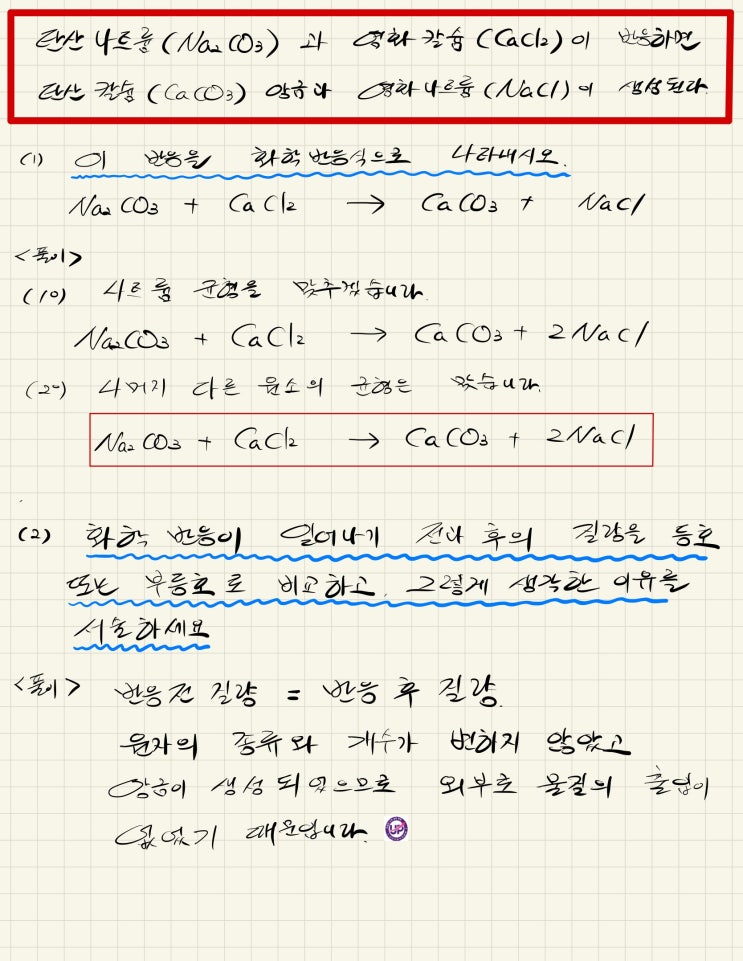 탄산 나트륨(Na₂CO₃)과 염화 칼슘(CaCl₂)이 반응하면
탄산 칼슘(CaCO₃) 앙금과 염화나트륨(NaCl)이 생성된다.
(1) 이 반응을 화학반응식으로 나타내시오.
Na₂CO₃ + CaCl₂ → CaCO₃ + NaCl
<풀이>
(1º) 나트륨 균형을 맞추겠습니다.
Na₂CO₃ + CaCl₂ → CaCO₃ + 2NaCl
(2º) 나머지 다른 원소의 균형은 맞습니다.
Na₂CO₃ + CaCl₂ → CaCO₃ + 2NaCl
(2) 화학 반응이 일어나기 전과 후의 질량을 등호
또는 부등호로 비교하고, 그렇게 생각한 이유를
서술하세요
<풀이> 반응 전 질량 = 반응 후 질량.
원자의 종류와 개수가 변하지 않았고
앙금이 생성되었으므로 외부로 물질의 출입이
없었기 때문입니다. UP